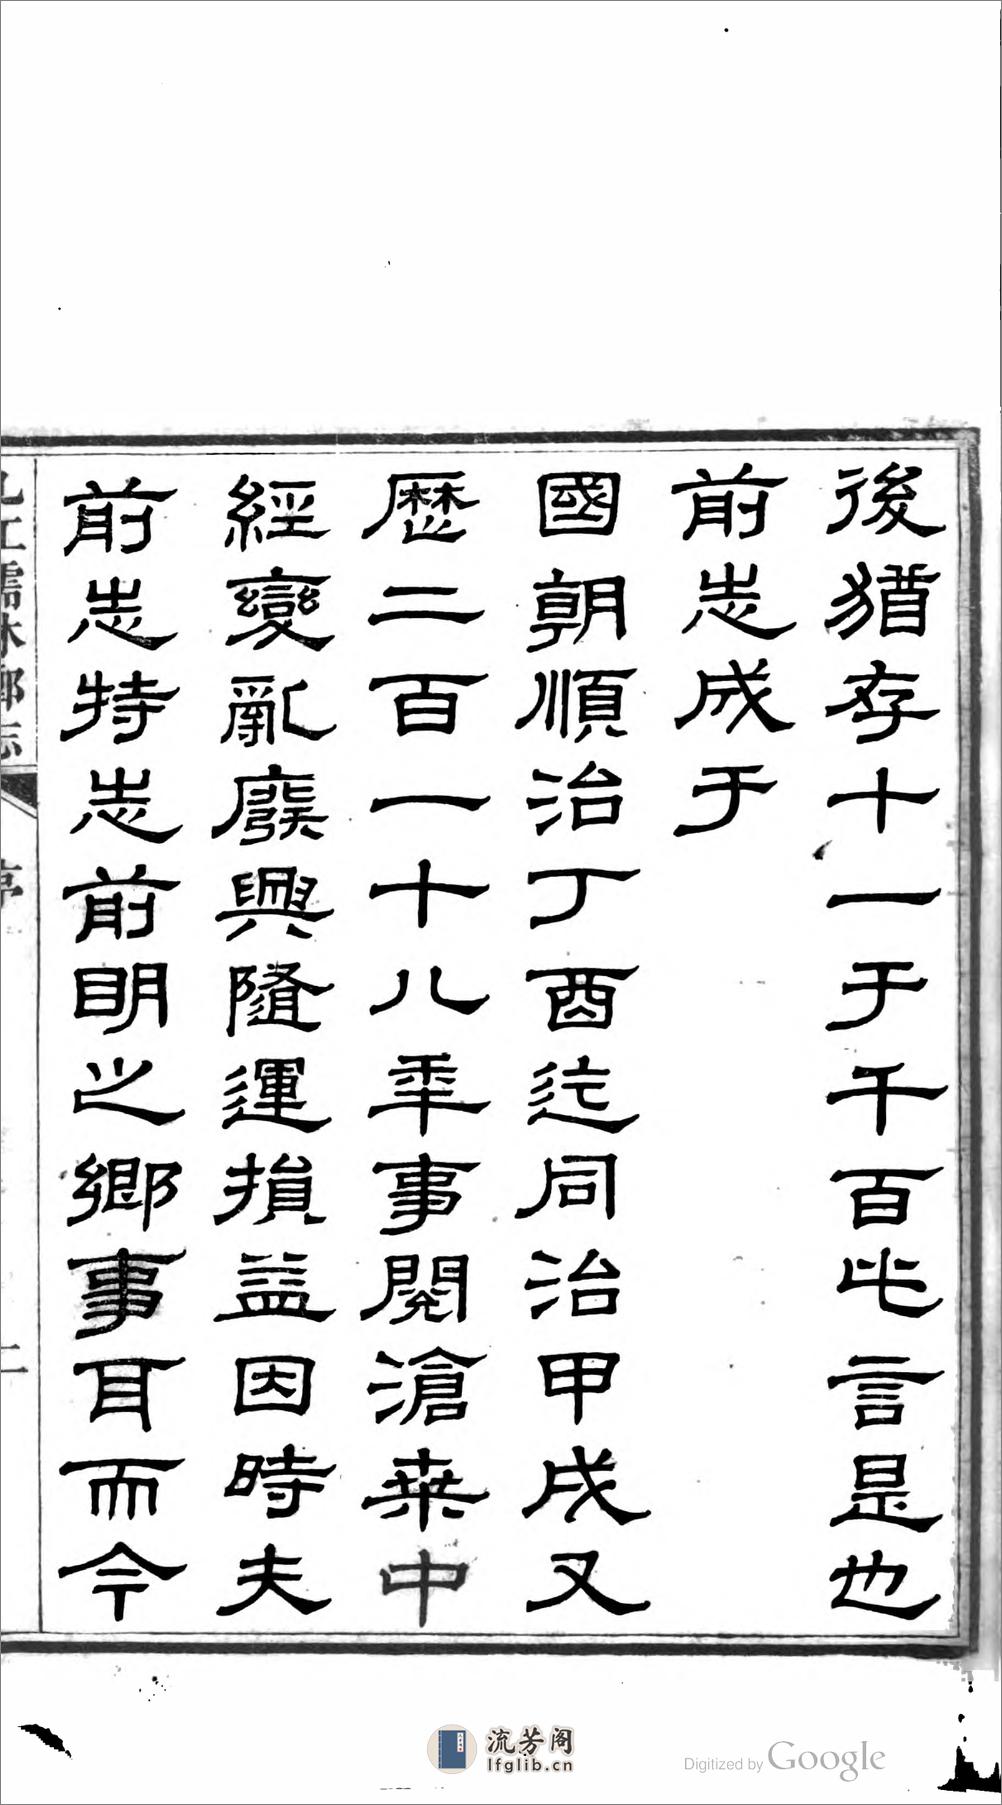 後猶存十一于千百此言是也
前志成于
國朝順治丁酉迄同治甲戌又
歷二百一十八年事閱滄桒中
經變亂廢興隨運損益因時夫
前志特志前明之鄉事耳而今
九江儒林鄉志
序
二
流芳阁
lfglib.cn
Digitized by Google